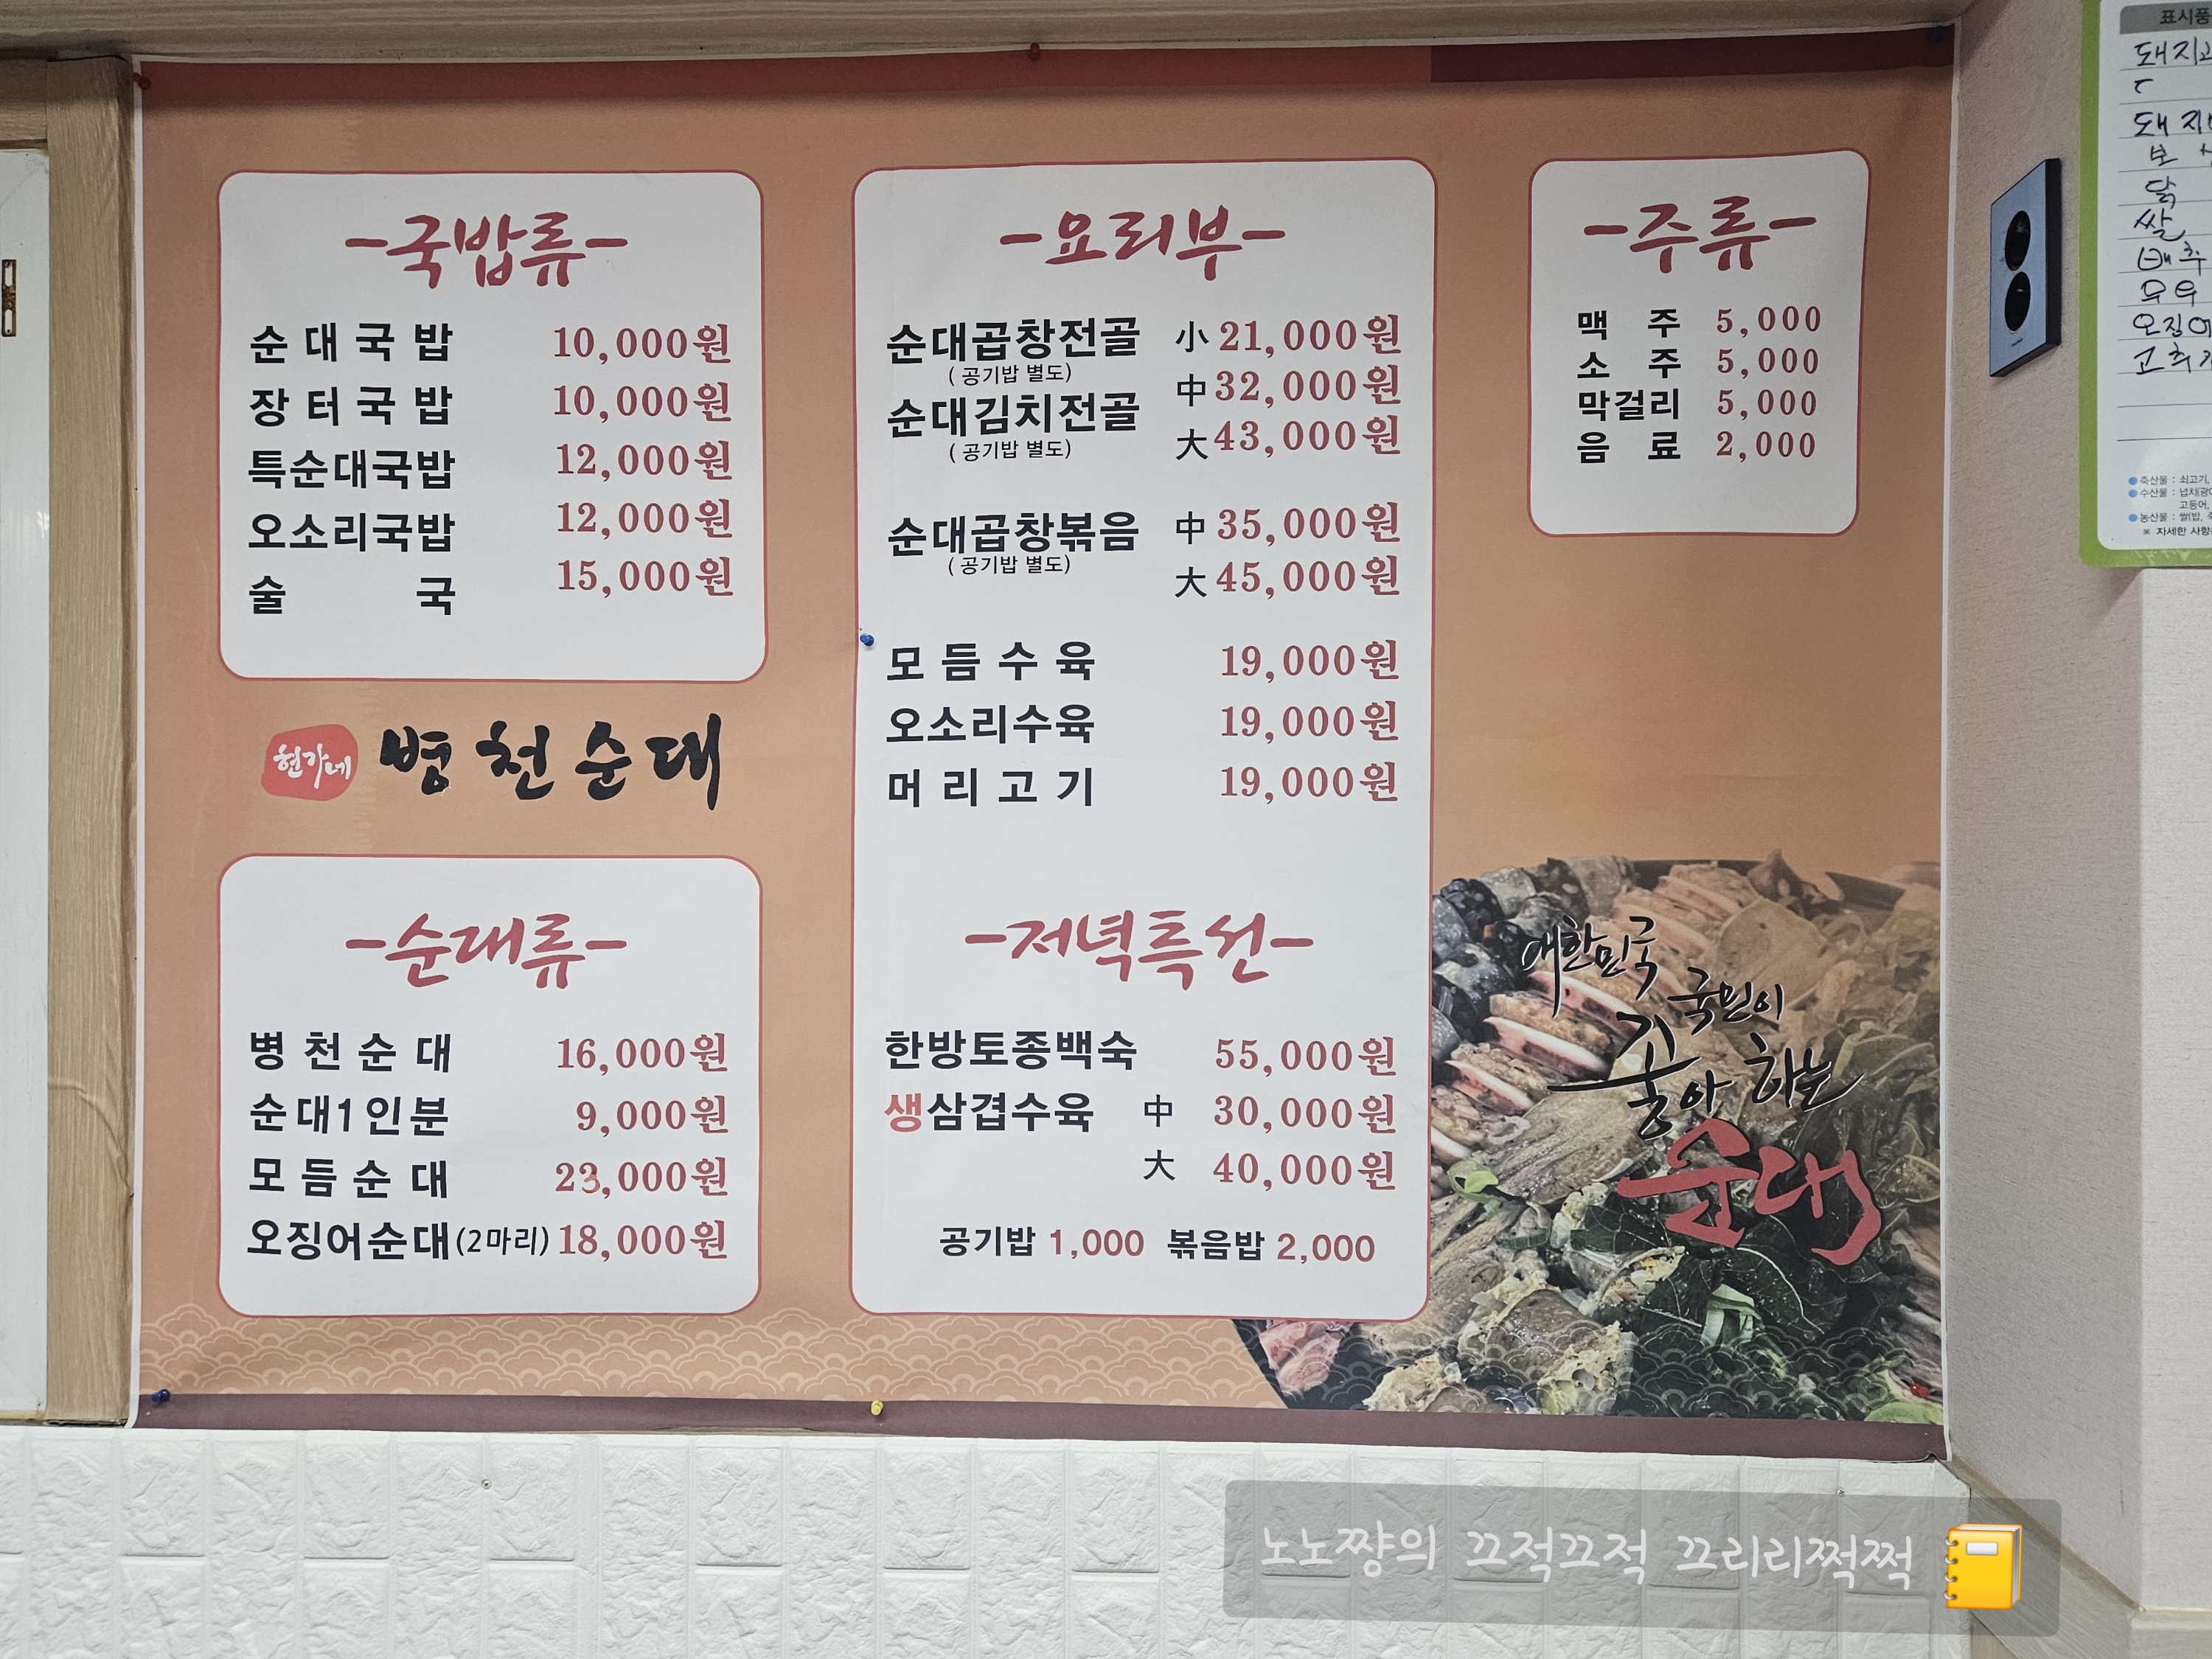 -국밥류-
순대국밥 10,000원
장터국밥 10,000원
특순대국밥 12,000원
오소리국밥 12,000원
술국 15,000원
현가네 병천순대
-순대류-
병천순대 16,000원
순대1인분 9,000원
모듬순대 23,000원
오징어순대(2마리) 18,000원
-요리부-
순대곱창전골 小 21,000원
(공기밥 별도) 中 32,000원
순대김치전골
(공기밥 별도) 大 43,000원
순대곱창볶음 中 35,000원
(공기밥 별도) 大 45,000원
모듬수육 19,000원
오소리수육 19,000원
머리고기 19,000원
-저녁특선-
한방토종백숙 55,000원
생삼겹수육 中 30,000원
大 40,000원
공기밥 1,000 볶음밥 2,000
-주류-
맥주 5,000
소주 5,000
막걸리 5,000
음료 2,000
대한민국
국민이
꼭
좋아하는
순대
표시품
돼지고
닭
쌀
배추
오징어
고춧가
축산물 : 쇠고기,
수산물 : 넙치(광어
고등어,
농산물 : 쌀(밥, 죽
※ 자세한 사항
노노쨩의 끄적끄적 끄리리쩍쩍